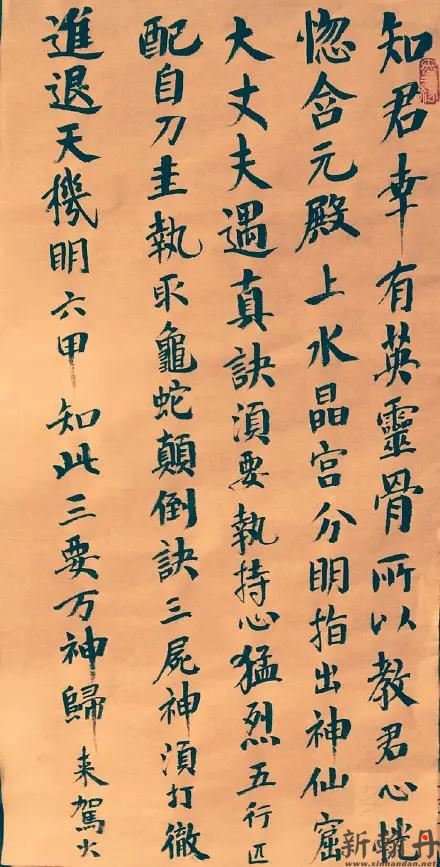 知君幸有英靈骨所以教君心恍
惚含元殿上水晶宮分明指出神仙窟
大丈夫遇真訣須要執持心猛烈五行匹
配自刀圭執取龜蛇顛倒訣三屍神須打徹
進退天機明六甲知此三要万神歸来駕火
www.xinhandan.net